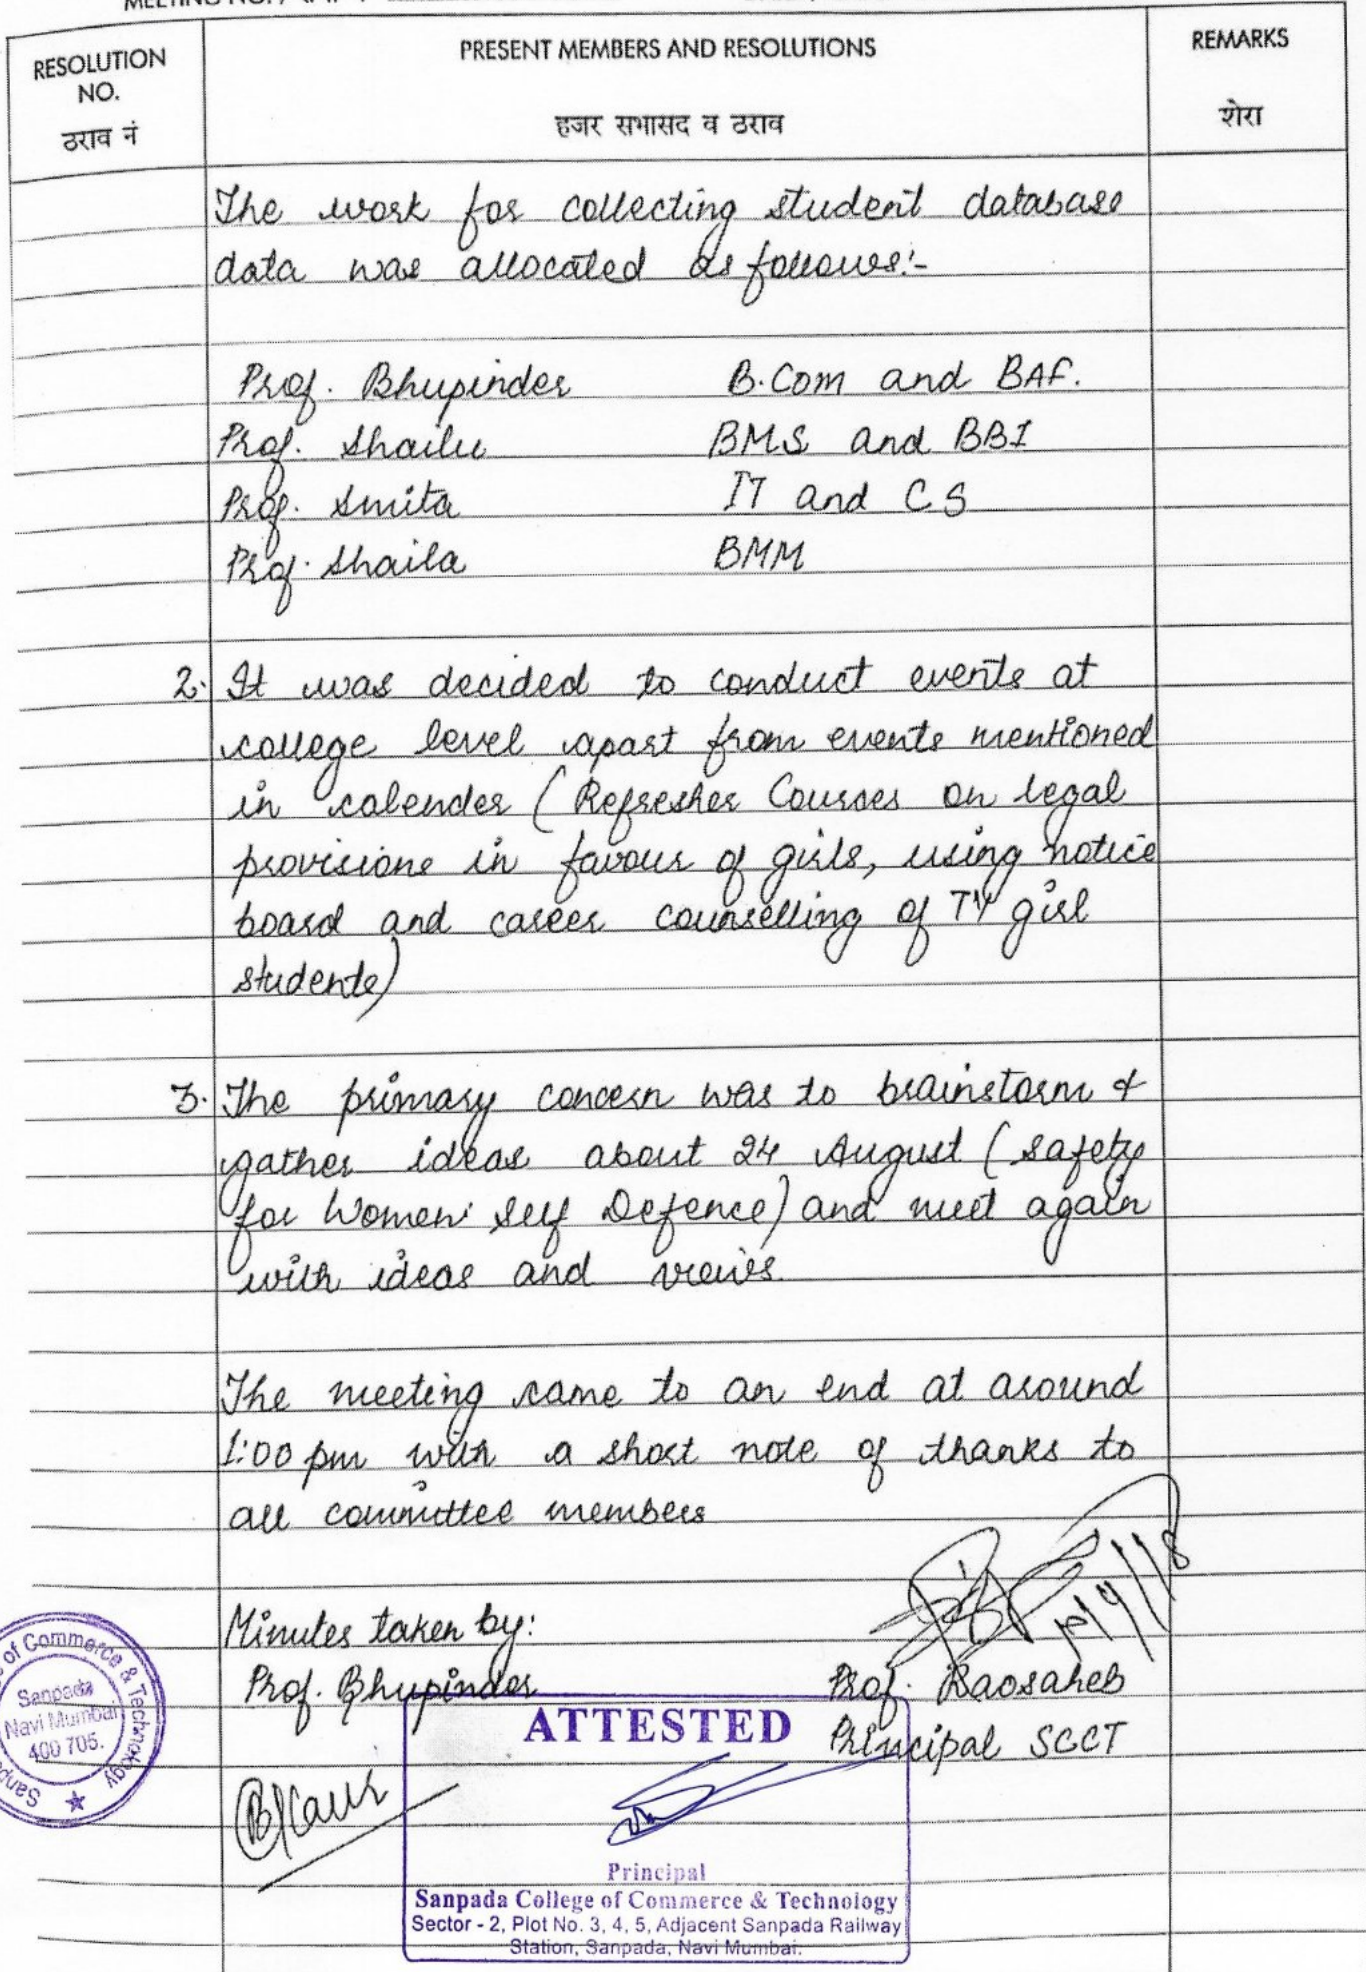 MEETING NO.
RESOLUTION NO. ठराव नं
PRESENT MEMBERS AND RESOLUTIONS
हजर सभासद व ठराव
REMARKS
शेरा
The work for collecting student database
data was allocated as follows:-
Prof. Bhupinder B.Com and BAF.
Prof. Shailu BMS and BBI
Prof. Smita IT and CS
Prof. Shaila BMM
2. It was decided to conduct events at
college level apart from events mentioned
in calender (Refresher Courses on legal
provisions in favour of girls, using notice
board and career counselling of TY girl
students)
3. The primary concern was to brainstorm &
gather ideas about 24 August (safety
for Women: Self Defence) and meet again
with ideas and views.
The meeting came to an end at around
1:00 pm with a short note of thanks to
all committee members
Minutes taken by:
Prof. Bhupinder Prof. Raosaheb
Principal SCCT
BKaur
ATTESTED
Principal
Sanpada College of Commerce & Technology
Sector - 2, Plot No. 3, 4, 5, Adjacent Sanpada Railway
Station, Sanpada, Navi Mumbai.
of Commerce & Technology
Sanpada
Navi Mumbai
400 705.